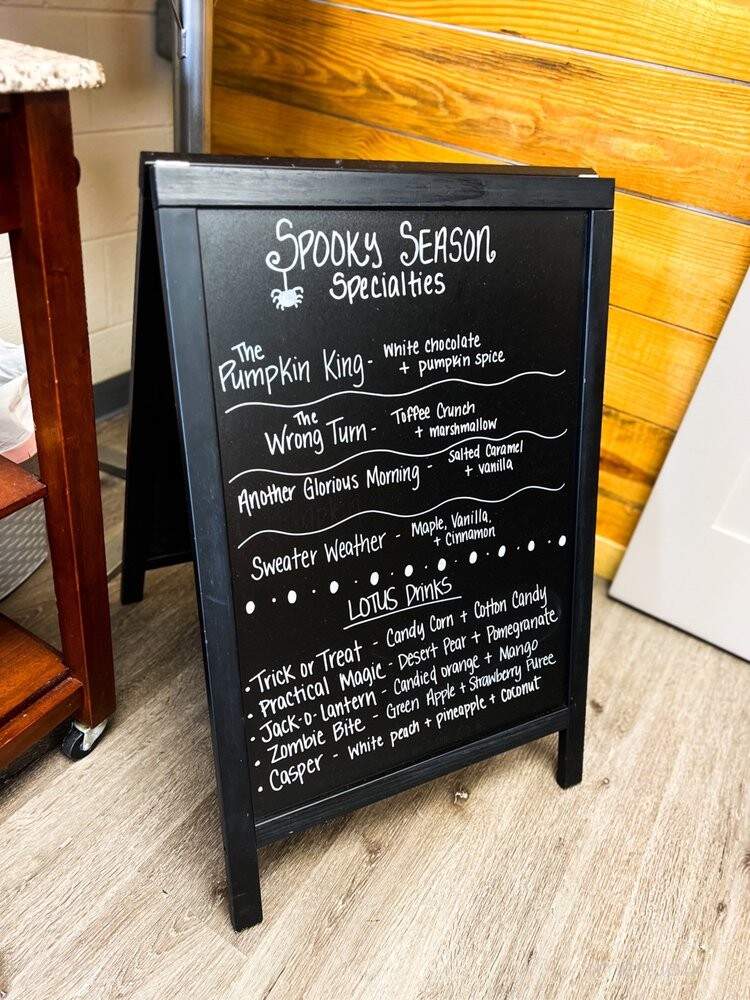 SPOOKY SEASON
Specialties
The Pumpkin King - White chocolate
+ pumpkin spice
The Wrong Turn - Toffee Crunch
+ marshmallow
Another Glorious Morning - Salted Caramel
+ vanilla
Sweater Weather - Maple, Vanilla,
+ Cinnamon
LOTUS Drinks
• Trick or Treat - Candy Corn + Cotton Candy
• Practical Magic - Desert Pear + Pomegranate
• Jack-o-lantern - Candied orange + Mango
• Zombie Bite - Green Apple + Strawberry Puree
• Casper - White peach + pineapple + coconut